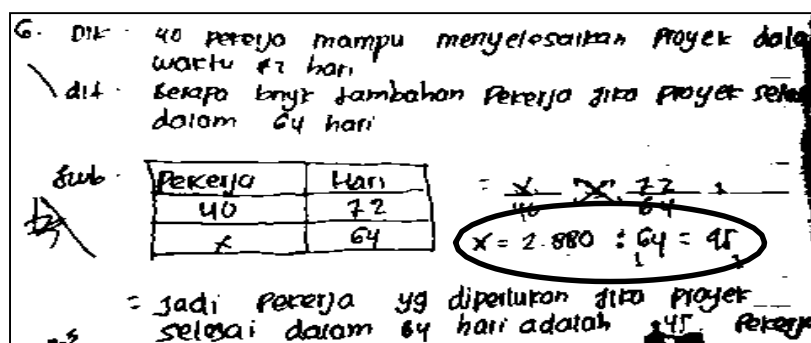 6. Dik · 40 Pekerja mampu menyelesaikan Proyek dala
waktu 72 hari
dit · Berapa bnyk tambahan Pekerja jika Proyek sele
dalam 64 hari
Jwb ·
Pekerja Hari
40 72
x 64
= x/40 72/64
x = 2.880 : 64 = 45
= Jadi Pekerja yg diperlukan jika Proyek
selesai dalam 64 hari adalah 45 Pekerja